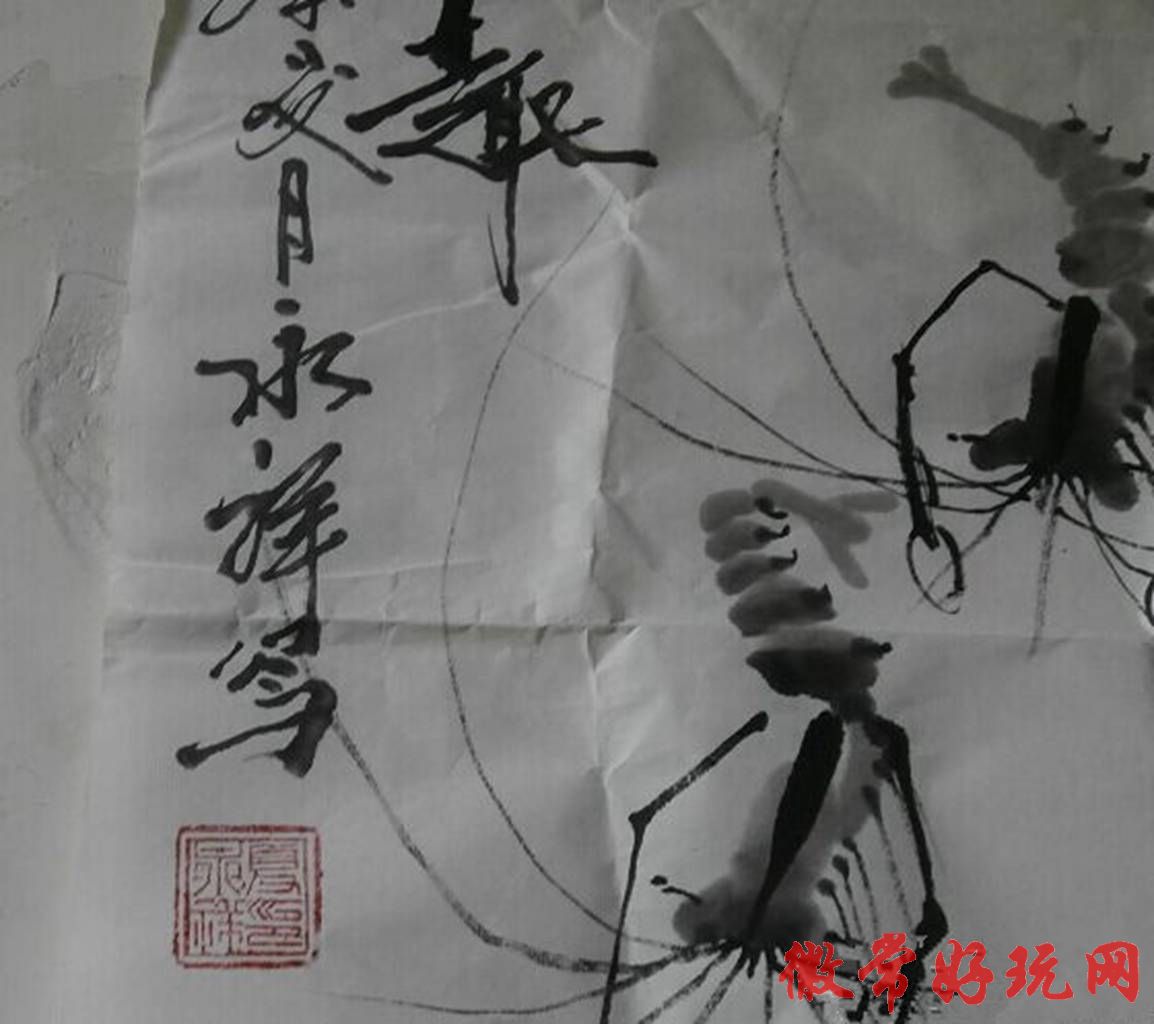 趣
夏月永祥写
印永祥
微常好玩网